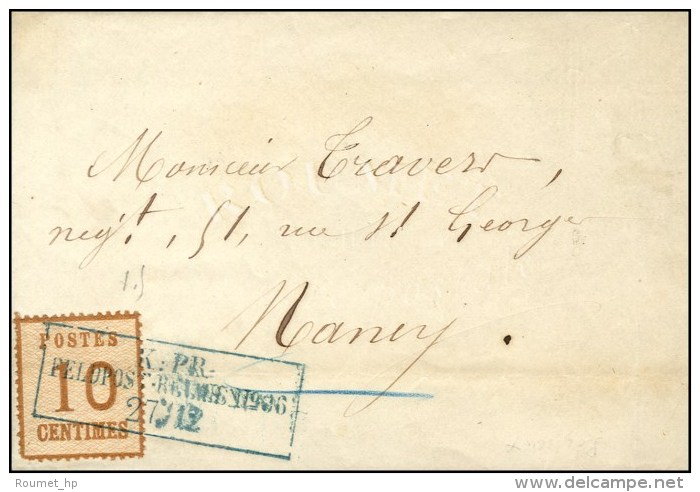 Monsieur Travers,
negt. 51, rue St George
Nancy.
POSTES
10
CENTIMES
K: PR:
FELDPOST-RELAIS
27/12
Roumet_hp
delcampe.net